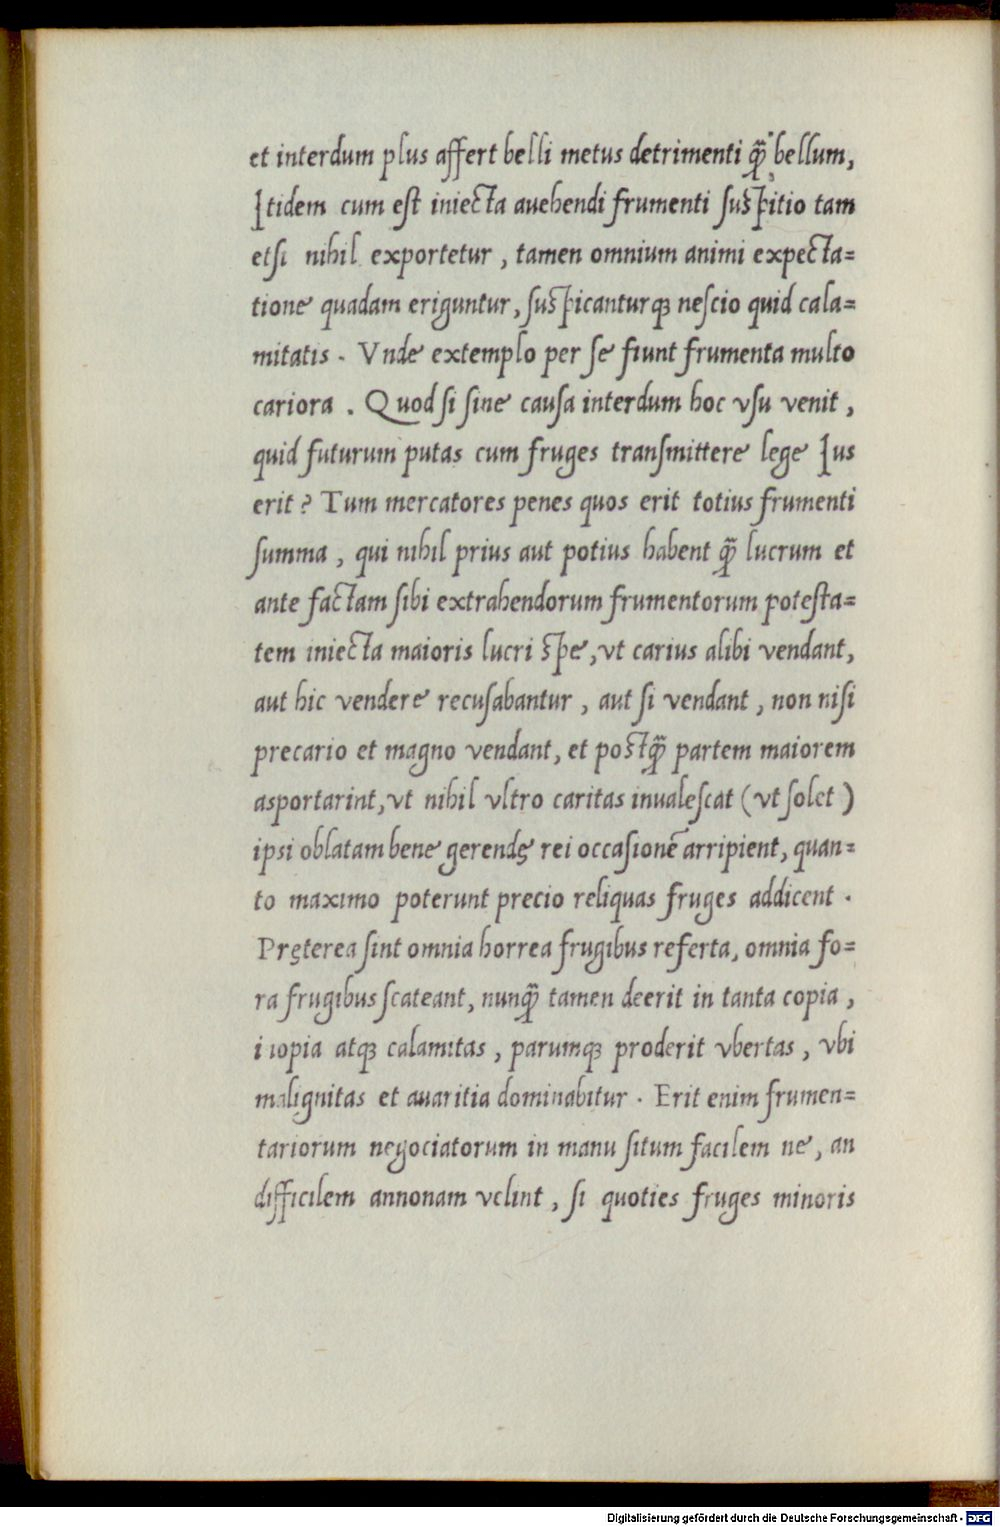 et interdum plus affert belli metus detrimenti q̃ bellum,
Itidem cum eſt iniecta auehendi frumenti ſuſpitio tam
etſi nihil exportetur, tamen omnium animi expecta=
tione quadam eriguntur, ſuſpicanturqꝫ neſcio quid cala=
mitatis. Vnde extemplo per ſe fiunt frumenta multo
cariora. Quod ſi ſine cauſa interdum hoc vſu venit,
quid futurum putas cum fruges tranſmittere lege Ius
erit? Tum mercatores penes quos erit totius frumenti
ſumma, qui nihil prius aut potius habent q̃ lucrum et
ante factam ſibi extrahendorum frumentorum poteſta=
tem iniecta maioris lucri ſpe, vt carius alibi vendant,
aut hic vendere recuſabantur, aut ſi vendant, non niſi
precario et magno vendant, et poſtq̃ partem maiorem
asportarint, vt nihil vltro caritas inualeſcat (vt ſolet)
ipsi oblatam bene gerendę rei occaſionē arripient, quan=
to maximo poterunt precio reliquas fruges addicent.
Pręterea ſint omnia horrea frugibus referta, omnia fo=
ra frugibus ſcateant, nunq̃ tamen deerit in tanta copia,
inopia atqꝫ calamitas, parumqꝫ proderit vbertas, vbi
malignitas et auaritia dominabitur. Erit enim frumen=
tariorum negociatorum in manu ſitum facilem ne, an
difficilem annonam velint, ſi quoties fruges minoris
Digitalisierung gefördert durch die Deutsche Forschungsgemeinschaft - DFG